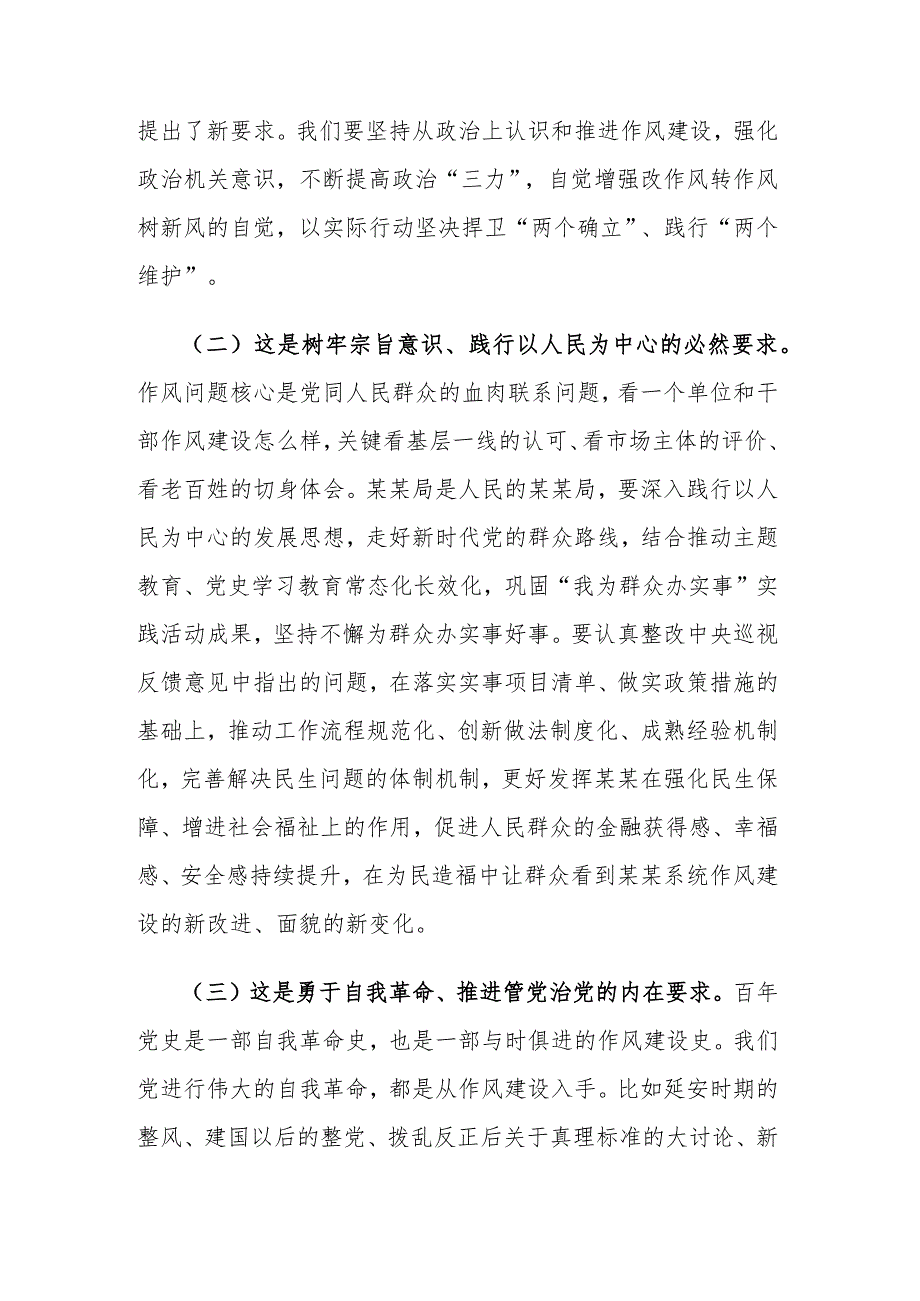 提出了新要求。我们要坚持从政治上认识和推进作风建设，强化
政治机关意识，不断提高政治“三力”，自觉增强改作风转作风
树新风的自觉，以实际行动坚决捍卫“两个确立”、践行“两个
维护”。
（二）这是树牢宗旨意识、践行以人民为中心的必然要求。
作风问题核心是党同人民群众的血肉联系问题，看一个单位和干
部作风建设怎么样，关键看基层一线的认可、看市场主体的评价、
看老百姓的切身体会。某某局是人民的某某局，要深入践行以人
民为中心的发展思想，走好新时代党的群众路线，结合推动主题
教育、党史学习教育常态化长效化，巩固“我为群众办实事”实
践活动成果，坚持不懈为群众办实事好事。要认真整改中央巡视
反馈意见中指出的问题，在落实实事项目清单、做实政策措施的
基础上，推动工作流程规范化、创新做法制度化、成熟经验机制
化，完善解决民生问题的体制机制，更好发挥某某在强化民生保
障、增进社会福祉上的作用，促进人民群众的金融获得感、幸福
感、安全感持续提升，在为民造福中让群众看到某某系统作风建
设的新改进、面貌的新变化。
（三）这是勇于自我革命、推进管党治党的内在要求。百年
党史是一部自我革命史，也是一部与时俱进的作风建设史。我们
党进行伟大的自我革命，都是从作风建设入手。比如延安时期的
整风、建国以后的整党、拨乱反正后关于真理标准的大讨论、新